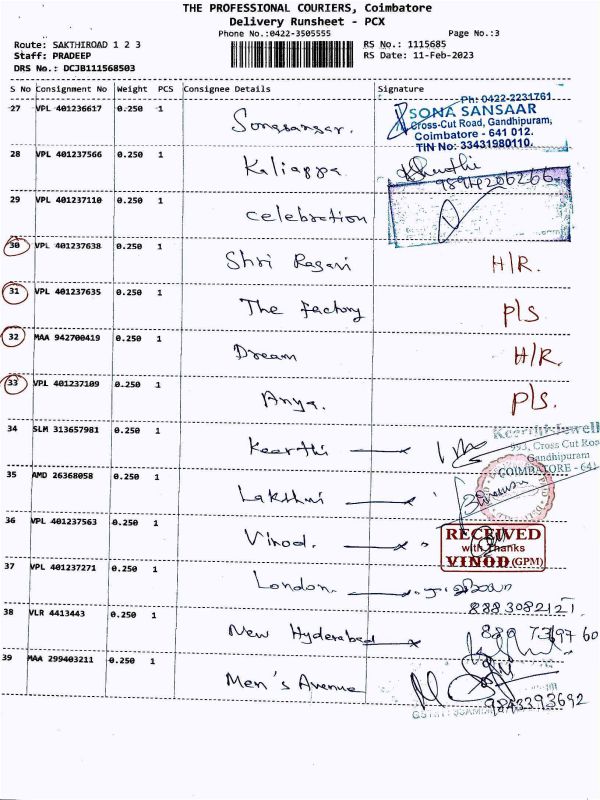 THE PROFESSIONAL COURIERS, Coimbatore
Delivery Runsheet - PCX
Phone No.:0422-3505555
Page No.:3
Route: SAKTHIROAD 1 2 3
RS No.: 1115685
Staff: PRADEEP
RS Date: 11-Feb-2023
DRS No.: DCJB111568503
S No Consignment No Weight PCS Consignee Details Signature
27 VPL 401236617 0.250 1 Sonasansar.
Ph: 0422-2231761
SONA SANSAAR
Cross-Cut Road, Gandhipuram,
Coimbatore - 641 012.
TIN No: 33431980110.
28 VPL 401237566 0.250 1 Kaliappa
29 VPL 401237110 0.250 1 Celebration
30 VPL 401237638 0.250 1 Shri Ragavi H/R.
31 VPL 401237635 0.250 1 The Factory P/S
32 MAA 942700419 0.250 1 Dream H/R.
33 VPL 401237109 0.250 1 Anya. P/S.
34 SLM 313657981 0.250 1 Keerthi
993, Cross Cut Roa
Gandhipuram
COIMBATORE - 641
35 AMD 26368058 0.250 1 Lakshmi
36 VPL 401237563 0.250 1 Vinod.
RECEIVED
with Thanks
VINOD (GPM)
37 VPL 401237271 0.250 1 London.
8883082121
38 VLR 4413443 0.250 1 New Hyderabad
39 MAA 299403211 0.250 1 Men's Avenue
9843393692